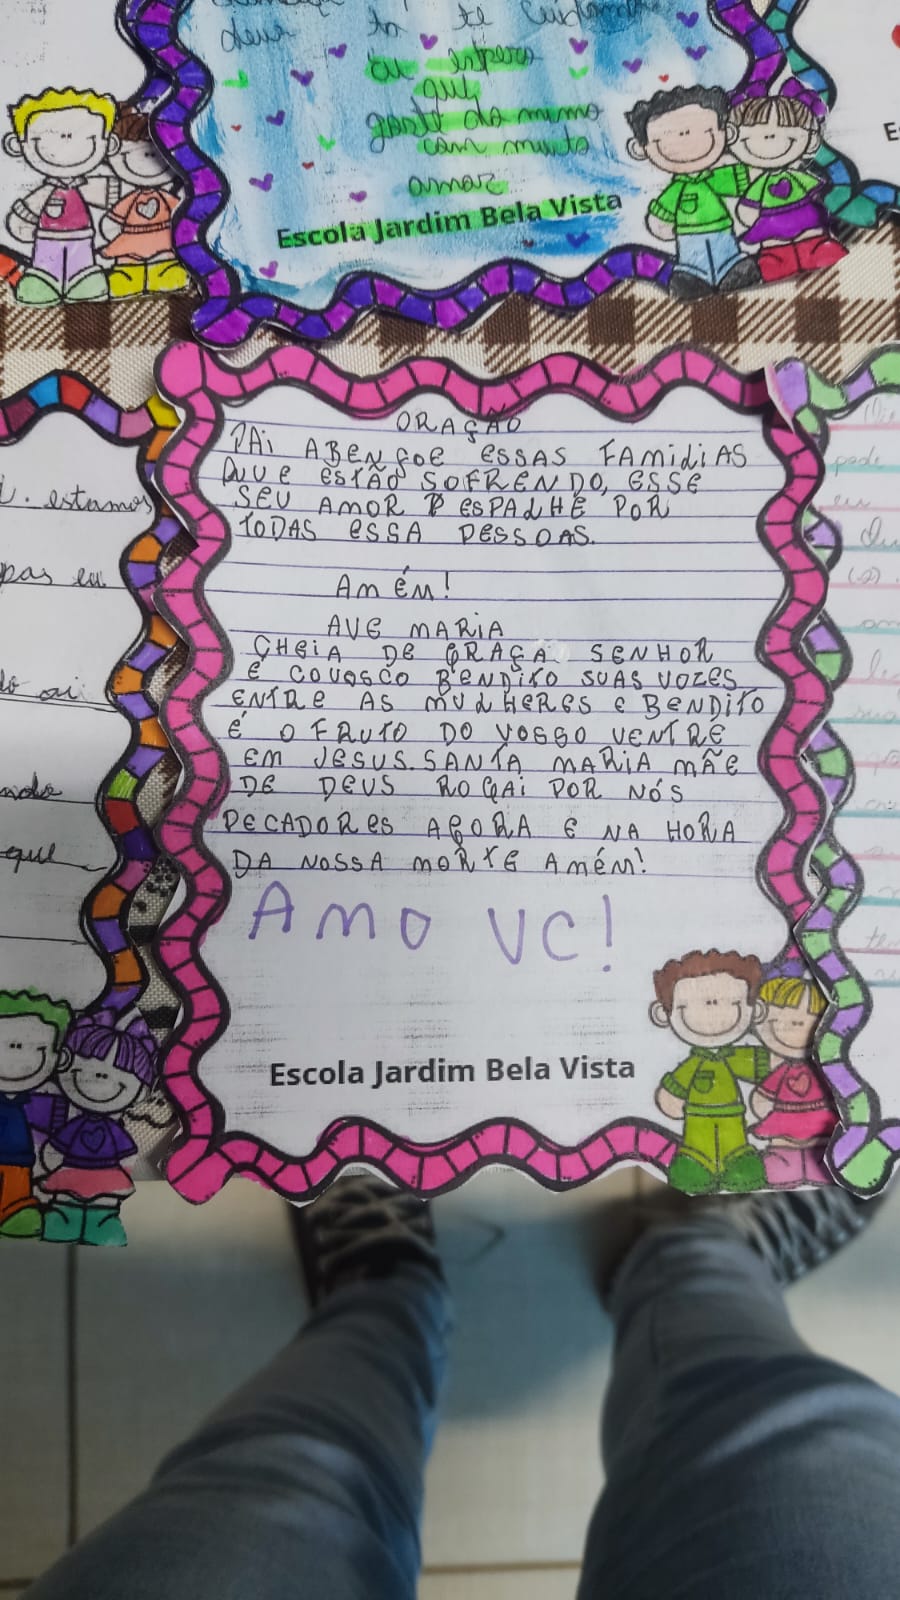 deus to te cuidando
eu espero
que
goste do mimo
com muito
amor
Escola Jardim Bela Vista
ORAÇÃO
PAi ABENÇOE ESSAS FAMiDiAS
QUE ESTÃO SOFRENDO, ESSE
SEU AMOR ESPALHE POR
TODAS ESSA PESSOAS.
AmÉM!
AVE MARiA
CHEiA DE GRAÇA SENHOR
E COVOSCO BENDiTO SUAS VOZES
ENTRE AS MULHERES E BENDiTO
É O FRUTO DO VOSSO VENTRE
EM JESUS. SANTA MARiA MÃE
DE DEUS ROGAi POR NÓS
PECADORES AGORA E NA HORA
DA NOSSA MORTE AMÉM!
AMO VC!
Escola Jardim Bela Vista
. estamos
pas eu
ai
ndo
que
pode
eu
(2).